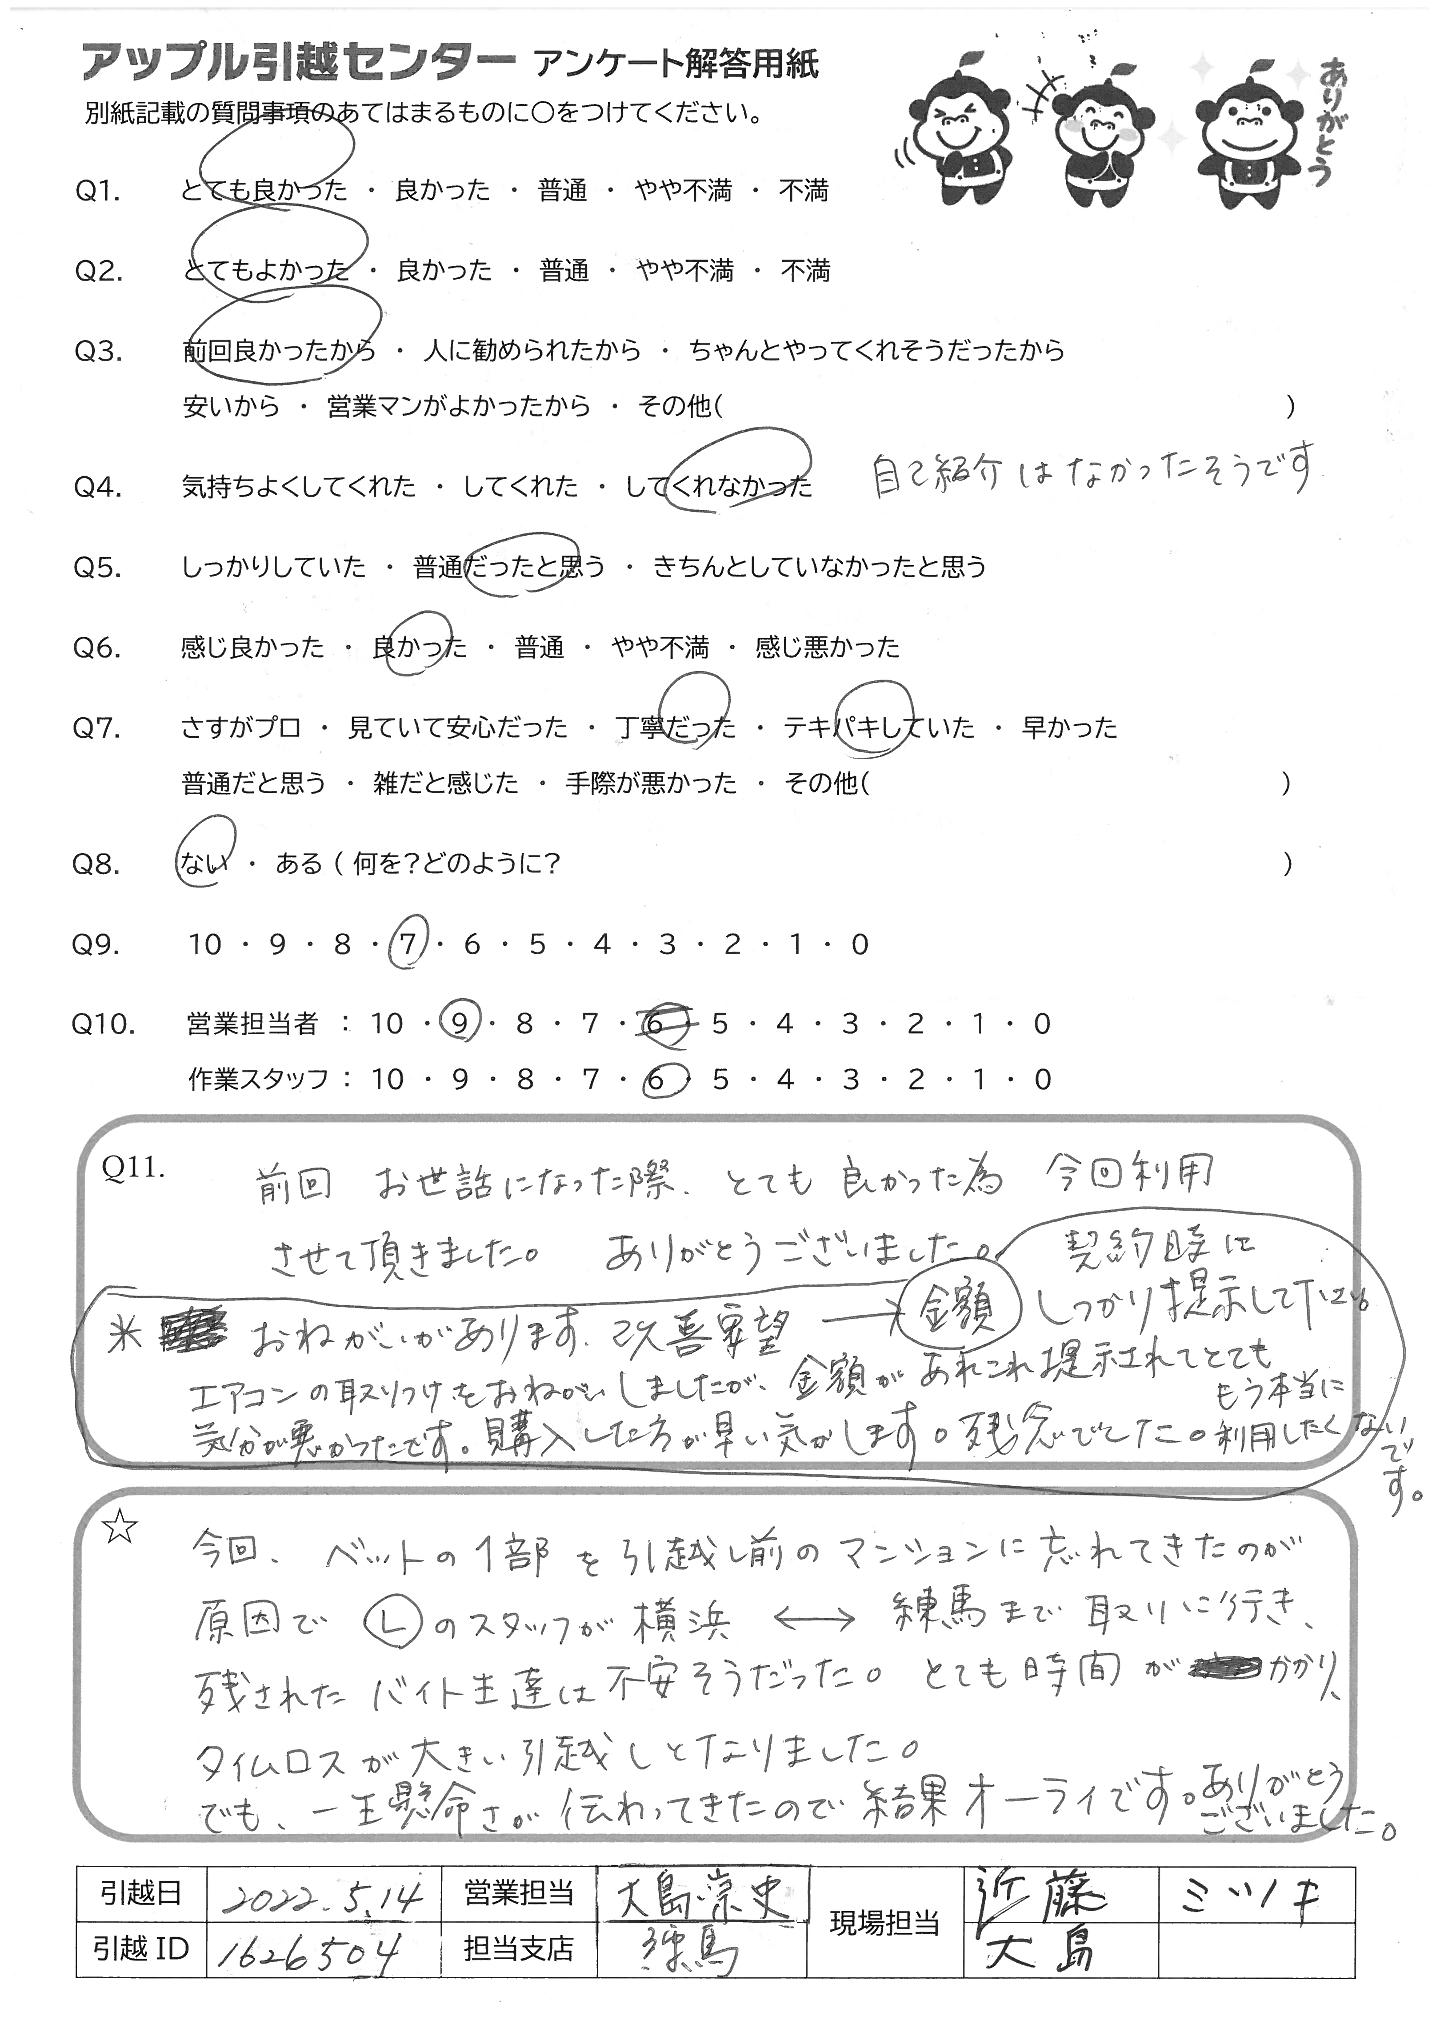 アップル引越センター アンケート解答用紙
ありがとう
別紙記載の質問事項のあてはまるものに○をつけてください。
Q1. とても良かった ・ 良かった ・ 普通 ・ やや不満 ・ 不満
Q2. とてもよかった ・ 良かった ・ 普通 ・ やや不満 ・ 不満
Q3. 前回良かったから ・ 人に勧められたから ・ ちゃんとやってくれそうだったから
安いから ・ 営業マンがよかったから ・ その他( )
Q4. 気持ちよくしてくれた ・ してくれた ・ してくれなかった 自己紹介はなかったそうです
Q5. しっかりしていた ・ 普通だったと思う ・ きちんとしていなかったと思う
Q6. 感じ良かった ・ 良かった ・ 普通 ・ やや不満 ・ 感じ悪かった
Q7. さすがプロ ・ 見ていて安心だった ・ 丁寧だった ・ テキパキしていた ・ 早かった
普通だと思う ・ 雑だと感じた ・ 手際が悪かった ・ その他( )
Q8. ない ・ ある ( 何を?どのように? )
Q9. 10 ・ 9 ・ 8 ・ 7 ・ 6 ・ 5 ・ 4 ・ 3 ・ 2 ・ 1 ・ 0
Q10. 営業担当者 : 10 ・ 9 ・ 8 ・ 7 ・ 6 ・ 5 ・ 4 ・ 3 ・ 2 ・ 1 ・ 0
作業スタッフ : 10 ・ 9 ・ 8 ・ 7 ・ 6 ・ 5 ・ 4 ・ 3 ・ 2 ・ 1 ・ 0
Q11. 前回 お世話になった際、とても良かった為 今回利用
させて頂きました。 ありがとうございました。 契約時に
※ おねがいがあります、改善要望 → 金額 しっかり提示して下さい。
エアコンの取りつけをおねがいしましたが、金額があれこれ提示されてとても
気分が悪かったです。購入した方が早い気がします。残念でした。もう本当に
利用したくないです。
☆ 今回、ベットの1部を引越し前のマンションに忘れてきたのが
原因で Ⓛのスタッフが横浜 ←→ 練馬まで取りに行き、
残されたバイト生達は不安そうだった。とても時間がかかり、
タイムロスが大きい引越しとなりました。
でも、一生懸命さが伝わってきたので結果オーライです。ありがとう
ございました。
引越日 2022.5.14 営業担当 大島崇史 現場担当 近藤 ミツノキ
引越ID 1626504 担当支店 練馬 大島